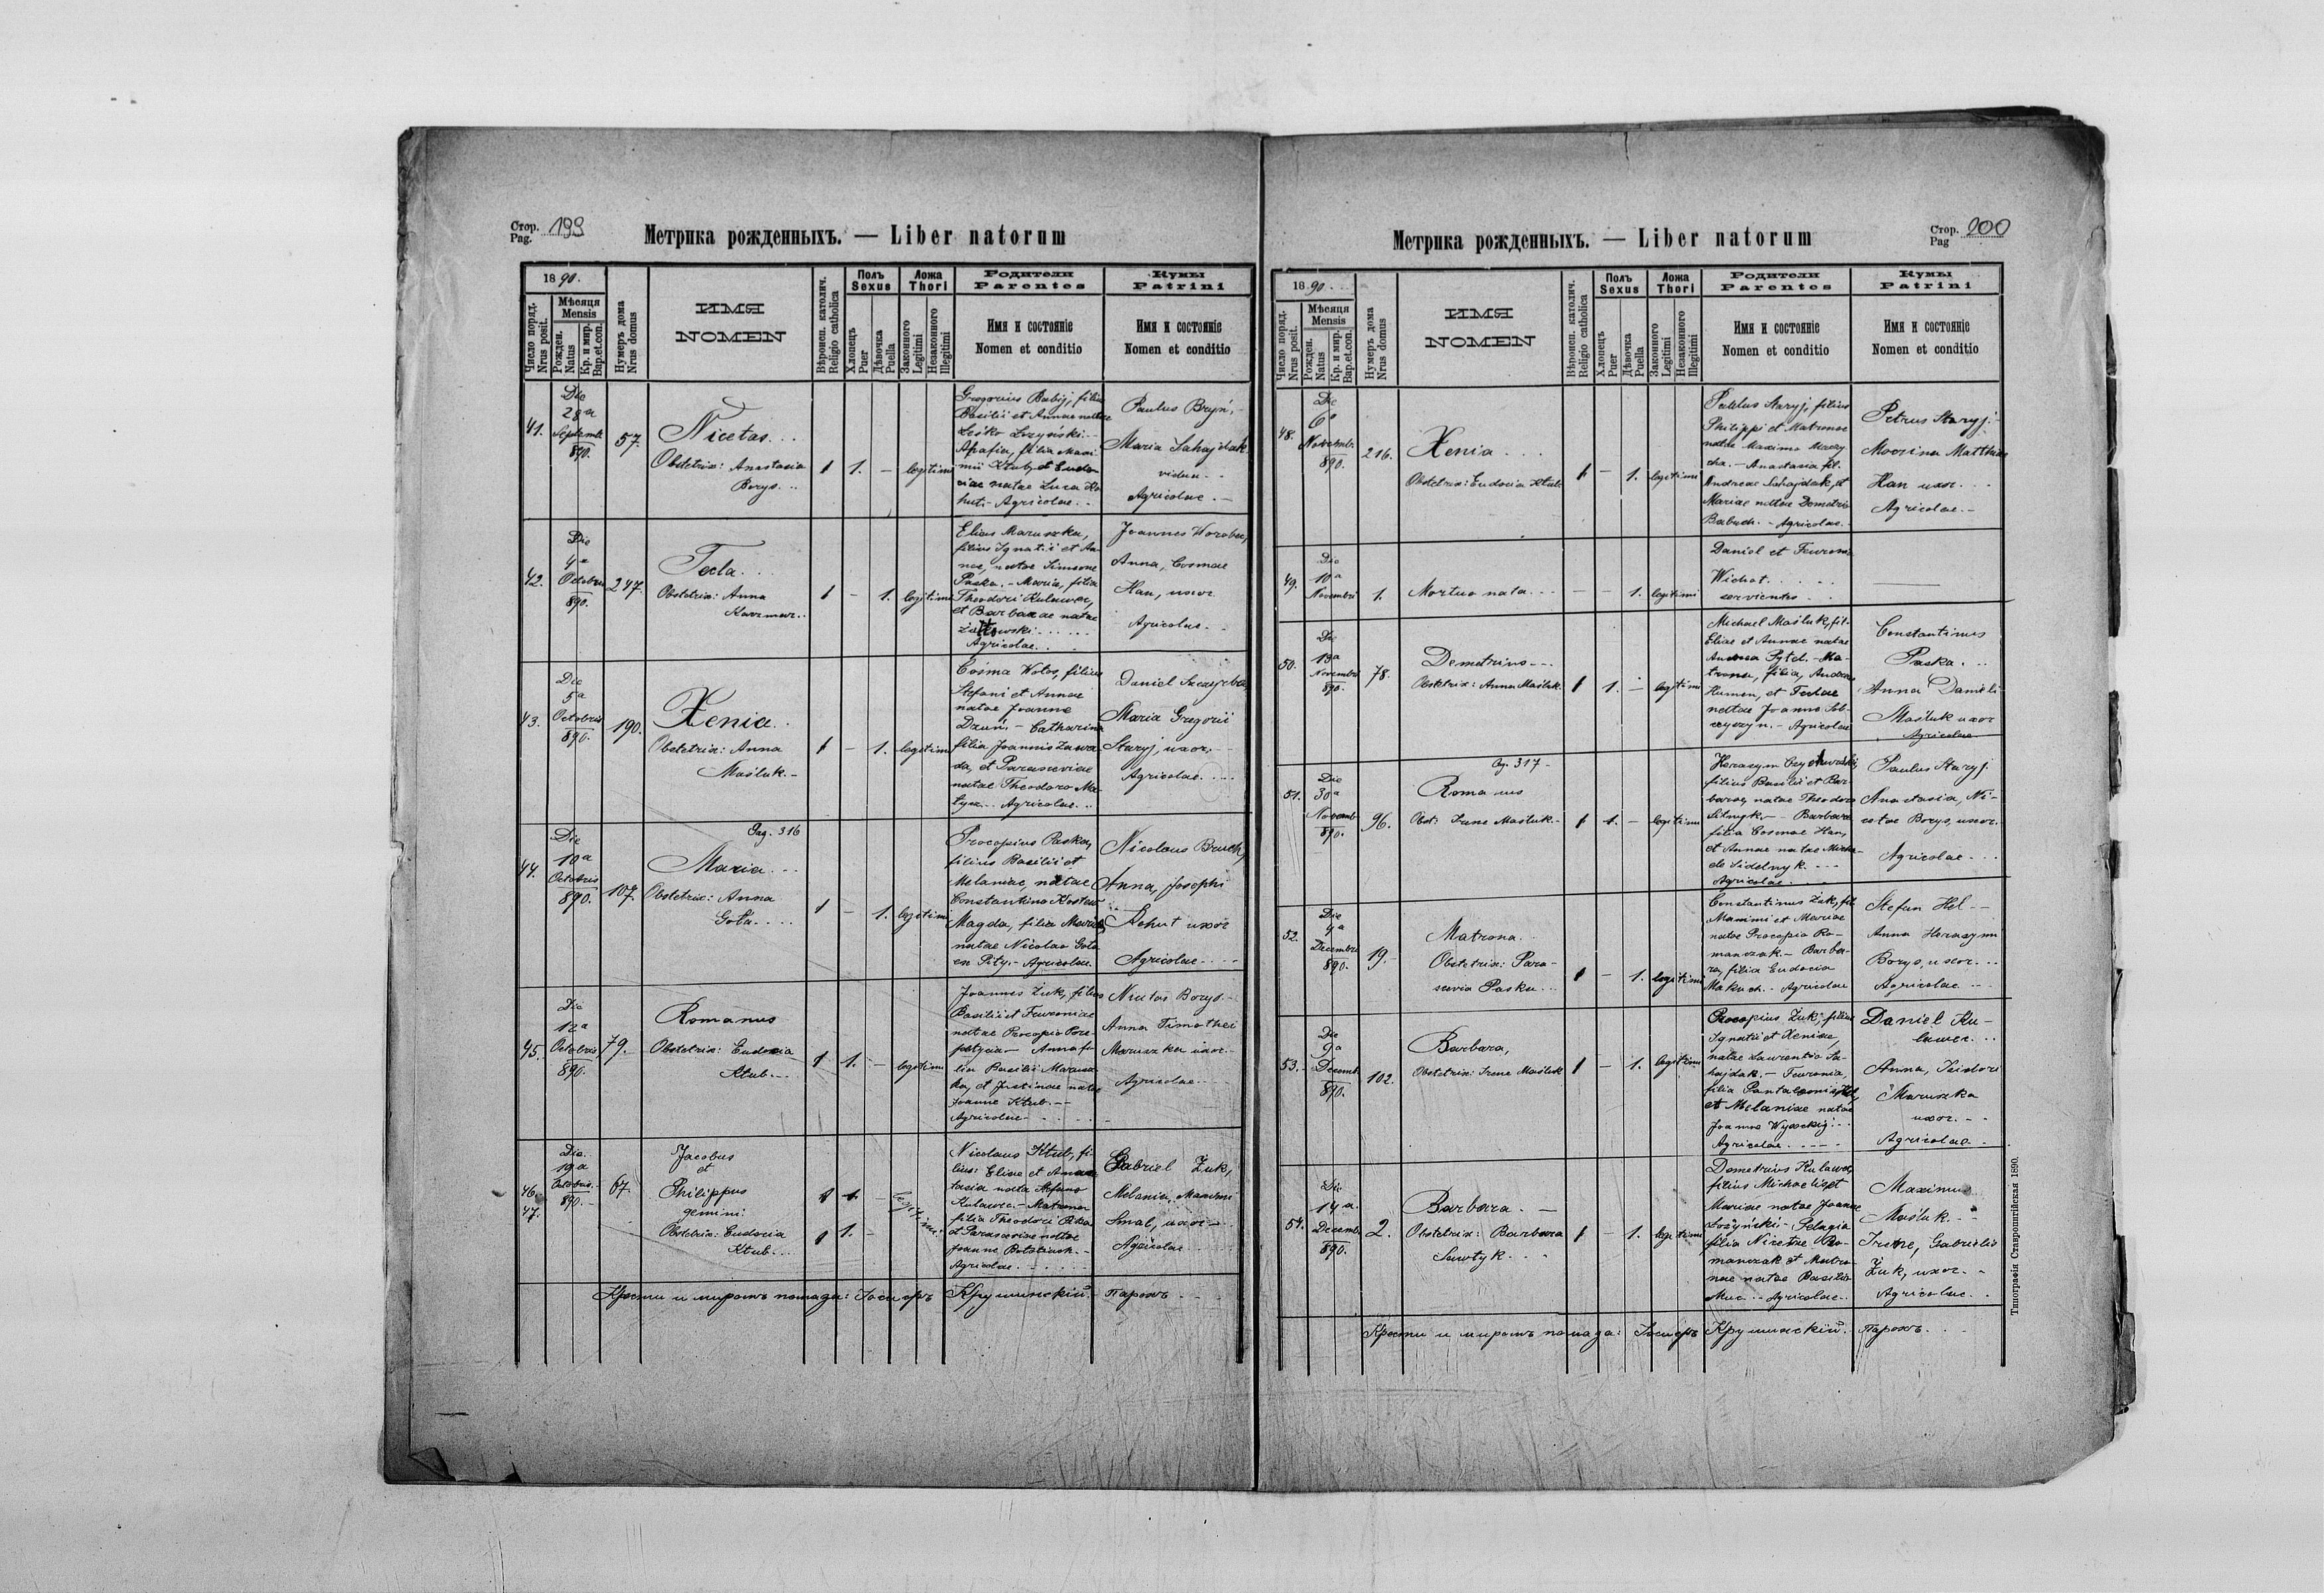 Стор.
Pag. 199
Метрика рожденныхъ. — Liber natorum
1890.
Число поряд.
Nrus posit.
Мѣсяця
Mensis
Рожден.
Natus
Кр. и мир.
Bap. et. con.
Нумеръ дома
Nrus domus
ИМЯ
NOMEN
Вѣроисп. католич.
Religio catholica
Полъ
Sexus
Хлопецъ
Puer
Дѣвочка
Puella
Ложа
Thori
Законного
Legitimi
Незаконного
Illegitimi
Родители
Parentes
Имя и состоянie
Nomen et conditio
Кумы
Patrini
Имя и состоянie
Nomen et conditio
41.
Die
28a
Septemb.
890.
57.
Nicetas...
Obstetrix: Anastasia
Borys...
1 1. — legitimi
Gregorius Babij, filius
Basilii et Annae natae
Leśko Łozyński. —
Agafia, filia Maxi-
mii Kłub, et Eudo-
ciae natae Luca Ko-
hut. — Agricolae..
Paulus Bryń,
Maria Sahajdak
vidua..
Agricolae. —
42.
Die
4a
Octobris
890.
247.
Tecla...
Obstetrix: Anna
Kaczmar..
1 — 1. legitimi
Elias Maruszka,
filius Ignatii et An-
nae, natae Simeone
Paska. — Maria, filia
Theodori Kulawec,
et Barbarae natae
Agricolae..
Joannes Worobec,
Anna, Cosmae
Han, uxor
Agricolae..
43.
Die
5a
Octobris
890.
190.
Xenia.
Obstetrix: Anna
Maśluk. —
1 — 1. legitimi
Cosma Wołos, filius
Stefani et Annae
natae Joanne
Dzuń. — Catharina
filia Joannis Zawa-
da, et Parasceviae
natae Theodoro Ma-
tyca... Agricolae..
Daniel Szczyrba,
Maria Gregorii
Staryj, uxor. —
Agricolae....
44.
Die
10a
Octobris
890.
107.
Pag. 316
Maria...
Obstetrix: Anna
Gota....
1 — 1. legitimi
Procopius Paska,
filius Basilii et
Melaniae, natae
Constantino Kostew
Magda, filia Mariae,
natae Nicolao Gota
ex Pity. — Agricolae.
Nicolaus Bruch,
Anna, Josephi
Kohut uxor
Agricolae....
45.
Die
12a
Octobris
890.
79.
Romanus
Obstetrix: Eudocia
Kłub...
1 1. — legitimi
Joannes Żuk, filius
Basilii et Fevroniae
natae Procopio Pere-
pełycia — Anna fi-
lia Basilii Marusz-
ka, et Justinae natae
Joanne Kłub. —
Agricolae
Nicetas Borys. —
Anna Timothei
Maruszka uxor. —
Agricolae..
46.
47.
Die.
19a
Octobris.
890. —
67.
Jacobus
et
Philippus
gemini:
Obstetrix: Eudocia
Kłub...
1 1. —
1 1. —
legitimi.
Nicolaus Kłub, fi-
lius: Eliae et Anas-
tasia nata Stefano
Kulawec. — Matrona
filia Theodori
et Parasceviae natae
Joanne
Agricolae.
Gabriel Żuk,
Melania, Maximi
Smal, uxor —
Agricolae
Крести и миромъ помаза: Іосифъ Крушинскій. Парохъ.
Стор.
Pag 200
Метрика рожденныхъ. — Liber natorum
1890.
Число поряд.
Nrus posit.
Мѣсяця
Mensis
Рожден.
Natus
Кр. и мир.
Bap. et. con.
Нумеръ дома
Nrus domus
ИМЯ
NOMEN
Вѣроисп. католич.
Religio catholica
Полъ
Sexus
Хлопецъ
Puer
Дѣвочка
Puella
Ложа
Thori
Законного
Legitimi
Незаконного
Illegitimi
Родители
Parentes
Имя и состоянie
Nomen et conditio
Кумы
Patrini
Имя и состоянie
Nomen et conditio
48.
Die
6a
Novemb.
890.
216.
Xenia...
Obstetrix: Eudocia Kłub
1 — 1. legitimi
Paulus Staryj, filius
Philippi et Matronae
natae Maximo
Anastasia fil.
Andreae Sahajdak, et
Mariae natae Demetrio
Babuch. — Agricolae.
Petrus Staryj. —
Marina Matthiae
Han uxor...
Agricolae. —
49.
Die
10a
Novembris
1.
Mortuo nata...
— — 1. legitimi
Daniel et Fevronia
Wichot.....
servientes..
50.
Die
13a
Novembris
890.
78.
Demetrius...
Obstetrix: Anna Maśluk.
1 1. — legitimi
Michael Maśluk, fil.
Eliae et Annae natae
Andrea Pytel. — Ma-
trona, filia, Andreae
Humen, et Teclae
natae Joanne Sob-
czyszyn. — Agricolae
Constantinus
Paska...
Anna Danieli
Maśluk uxor
Agricolae
51.
Die
30a
Novemb.
890.
96.
Pag. 317 —
Romanus
Obst: Irene Maśluk. —
1 1. — legitimi
Herasym
filius Basilii et Bar-
barae, natae Theodoro
Sitnyk. — Barbara
filia Cosmae Han,
et Annae natae Micha-
ele Sidelnyk...
Agricolae
Paulus Staryj.
Anastasia, Ni-
cetae Borys, uxor.
Agricolae...
52.
Die
4a
Decembris
890.
19.
Matrona.
Obstetrix: Para-
scevia Paska...
1 — 1. legitimi
Constantinus Żuk, fil.
Maximi et Mariae
natae Procopio Ro-
manczak. — Barba-
ra, filia Eudocia
Makuch. — Agricolae
Stefan Hel —
Anna Herasymi
Borys, uxor...
Agricolae..
53.
Die
9a
Decemb.
890.
102.
Barbara,
Obstetrix: Irene Maśluk
1 — 1. legitimi
Procopius Żuk, filius
Ignatii et Xeniae,
natae Laurentio Sa-
hajdak. — Fevronia,
filia Pantaleonis Hel,
et Melaniae natae
Joanne Wysockij...
Agricolae
Daniel Ku-
lawec...
Anna, Isidori
Maruszka
uxor..
Agricolae..
54.
Die
14a.
Decemb.
890.
2.
Barbara. —
Obstetrix: Barbara
Sawtyk...
1 — 1. legitimi
Demetrius Kulawec,
filius Michaelis et
Mariae natae Joanne
Łożyński. — Pelagia
filia Nicetae Ro-
manczak et Matro-
nae natae Basilio
Muc.. — Agricolae..
Maximus
Maśluk..
Irene, Gabrielis
Żuk, uxor..
Agricolae..
Крести и миромъ помаза: Іосифъ Крушинскій. Парохъ.
Типографія Ставропигійская 1890.